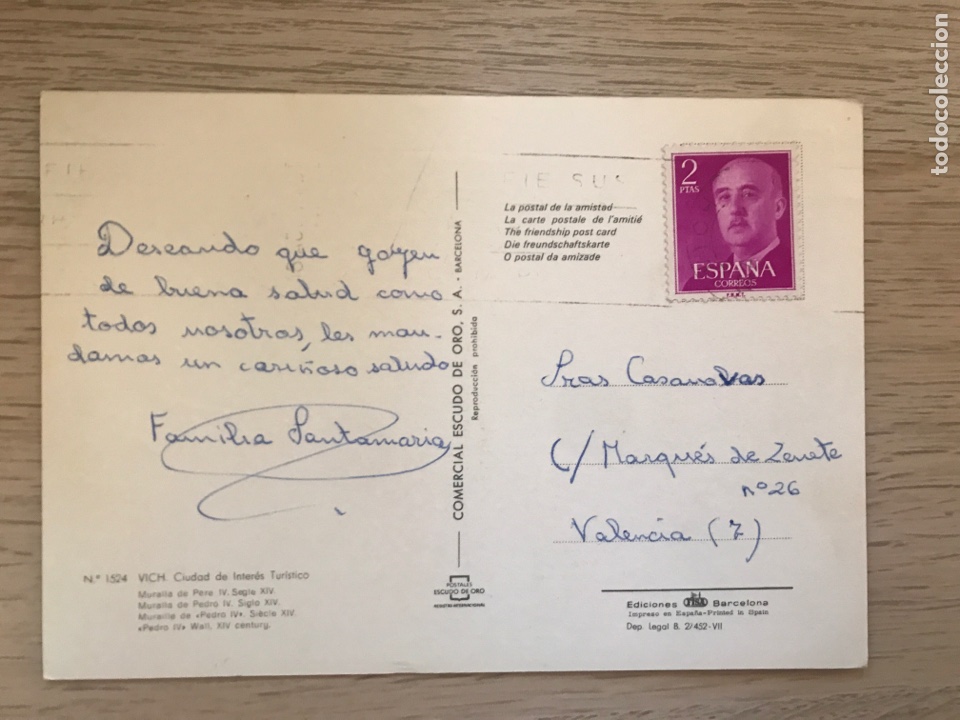 Deseando que gozen
de buena salud como
todos nosotros, les man-
damos un cariñoso saludo
Familia Santamaria
Nº 1524 VICH. Ciudad de Interés Turístico
Muralla de Pere IV. Segle XIV.
Muralla de Pedro IV. Siglo XIV.
Muraille de «Pedro IV». Siècle XIV.
«Pedro IV» Wall, XIV centurg.
COMERCIAL ESCUDO DE ORO, S. A. - BARCELONA
Reproducción prohibida
POSTALES
ESCUDO DE ORO
REGISTRO INTERNACIONAL
La postal de la amistad
La carte postale de l'amitié
The friendship post card
Die freundschaftskarte
O postal da amizade
2
PTAS
ESPAÑA
CORREOS
Sras Casanovas
C/ Marqués de Zenete
nº 26
Valencia (7)
Ediciones FISA Barcelona
Impreso en España-Printed in Spain
Dep. legal B. 2/452-VII
todocoleccion